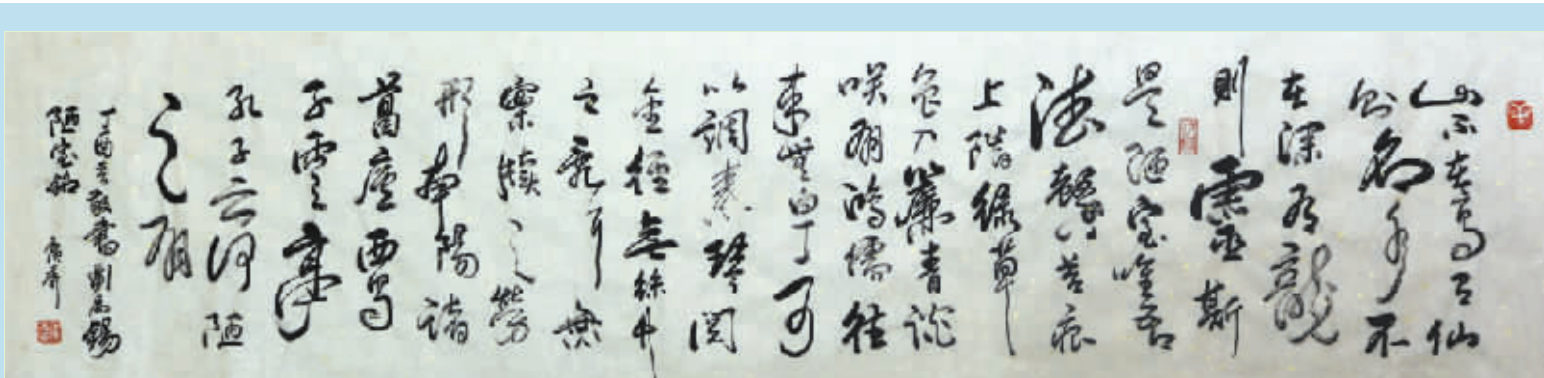 山不在高有仙
則名水不
在深有龍
則靈斯
是陋室唯吾
德馨苔痕
上階綠草
色入簾青談
咲有鴻儒往
來無白丁可
以調素琴閱
金經無絲竹
之亂耳無
案牘之勞
形南陽諸
葛廬西蜀
子雲亭
孔子云何陋
之有
丁酉敬書劉禹錫
陋室銘